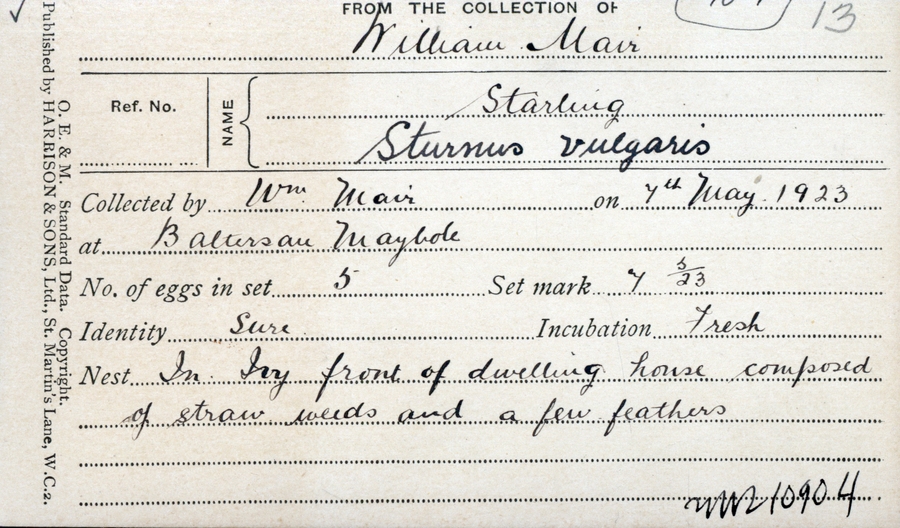 FROM THE COLLECTION OF
13
William Mair
Ref. No.
NAME
Starling
Sturnus vulgaris
Collected by Wm. Mair on 7th May. 1923
at Baltersan Maybole
No. of eggs in set 5 Set mark 7 5/23
Identity Sure Incubation Fresh
Nest In Ivy front of dwelling house composed
of straw weeds and a few feathers
10904
O. E. & M. Standard Data. Copyright.
Published by HARRISON & SONS, Ltd., St. Martin's Lane, W.C.2.